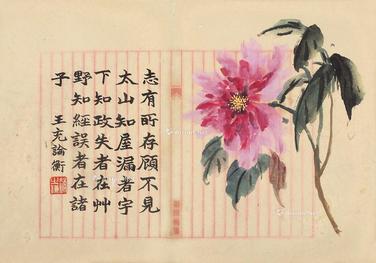 志有所存顧不見
太山知屋漏者在宇
下知政失者在艸
野知經誤者在諸
子
王充論衡